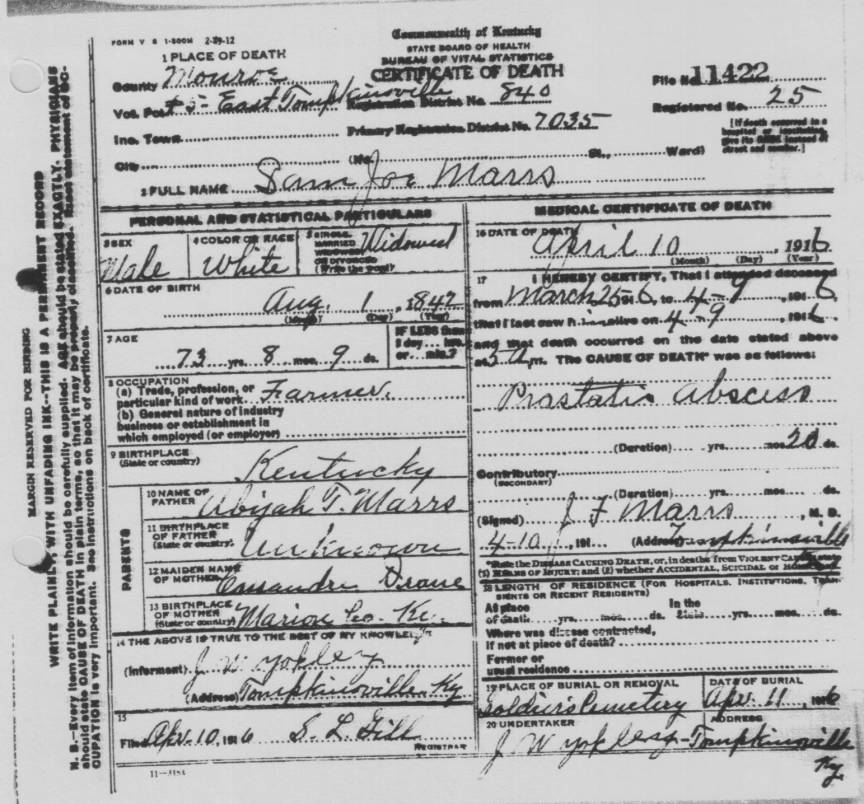 FORM V S 1-500M 2-29-12
Commonwealth of Kentucky
STATE BOARD OF HEALTH
BUREAU OF VITAL STATISTICS
CERTIFICATE OF DEATH
1 PLACE OF DEATH
County Monroe
Vot. Pct #5-East Tompkinsville Registration District No. 840
File No. 11422
Registered No. 25
Inc. Town Primary Registration District No. 7035
[If death occurred in a hospital or institution, give its NAME instead of street and number.]
City (No. St., Ward)
2 FULL NAME Sam Joe Marrs
PERSONAL AND STATISTICAL PARTICULARS
3 SEX Male
4 COLOR OR RACE White
5 SINGLE, MARRIED, WIDOWED OR DIVORCED (Write the word) Widowed
6 DATE OF BIRTH
Aug. 1, 1842
(Month) (Day) (Year)
7 AGE
73 yrs. 8 mos. 9 ds.
IF LESS than 1 day ... hrs. or ... min.?
8 OCCUPATION
(a) Trade, profession, or
particular kind of work Farmer.
(b) General nature of industry
business or establishment in
which employed (or employer)
9 BIRTHPLACE
(State or country) Kentucky
PARENTS
10 NAME OF
FATHER Abijah T. Marrs
11 BIRTHPLACE
OF FATHER
(State or country) Unknown
12 MAIDEN NAME
OF MOTHER
13 BIRTHPLACE
OF MOTHER
(State or country) Marion Co. Ky.
14 THE ABOVE IS TRUE TO THE BEST OF MY KNOWLEDGE
(Informant) J W Yokley
(Address) Tompkinsville Ky
15
Filed Apr. 10, 1916 S. L. Gill
REGISTRAR
11-3184
MEDICAL CERTIFICATE OF DEATH
16 DATE OF DEATH
April 10, 1916
(Month) (Day) (Year)
17 I HEREBY CERTIFY, That I attended deceased
from March 25 1916, to 4-9, 1916,
that I last saw him alive on 4-9, 1916,
and that death occurred on the date stated above
at 5 a m. The CAUSE OF DEATH* was as follows:
Prostatic abscess
(Duration) yrs. mos. 20 ds.
Contributory
(SECONDARY)
(Duration) yrs. mos. ds.
(Signed) J F Marrs, M. D.
4-10, 191 (Address) Tompkinsville
*State the DISEASE CAUSING DEATH, or, in deaths from VIOLENT CAUSES, state
(1) MEANS OF INJURY; and (2) whether ACCIDENTAL, SUICIDAL or
18 LENGTH OF RESIDENCE (FOR HOSPITALS, INSTITUTIONS, TRANSIENTS OR RECENT RESIDENTS)
At place In the
of death yrs. mos. ds. State yrs. mos. ds.
Where was disease contracted,
if not at place of death?
Former or
usual residence
19 PLACE OF BURIAL OR REMOVAL DATE OF BURIAL
Soldiers Cemetery Apr. 11, 1916
20 UNDERTAKER ADDRESS
J W Yokley-Tompkinsville
Ky.
MARGIN RESERVED FOR BINDING
WRITE PLAINLY, WITH UNFADING INK--THIS IS A PERMANENT RECORD
N. B.--Every item of information should be carefully supplied. AGE should be stated EXACTLY. PHYSICIANS
should state CAUSE OF DEATH in plain terms, so that it may be properly classified. Exact statement of OC-
CUPATION is very important. See instructions on back of certificate.